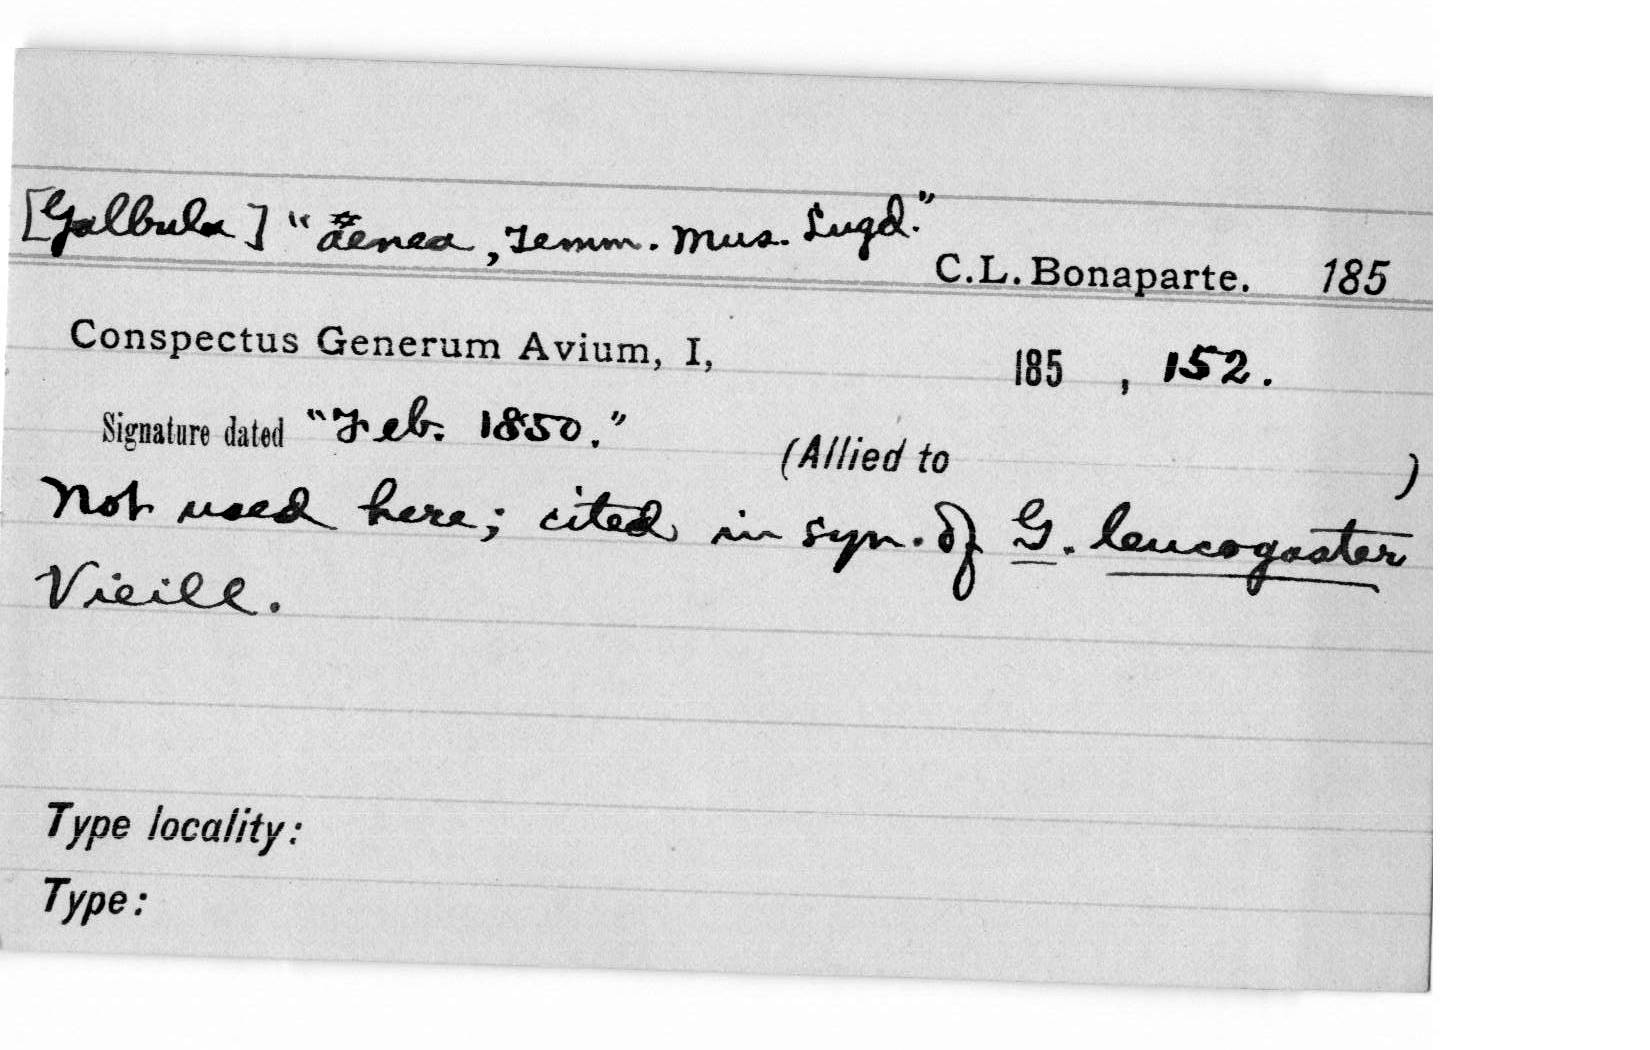 [Galbula] "aenea, Temm. Mus. Lugd."
C.L. Bonaparte. 185
Conspectus Generum Avium, I, 185 , 152.
Signature dated "Feb. 1850." (Allied to )
Not used here; cited in syn. of G. leucogaster
Vieill.
Type locality:
Type: